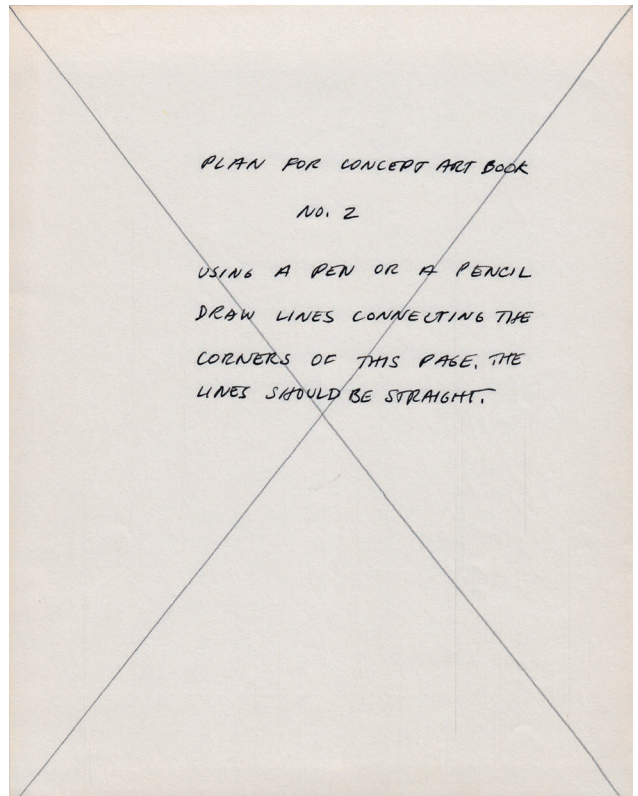 PLAN FOR CONCEPT ART BOOK
NO. 2
USING A PEN OR A PENCIL
DRAW LINES CONNECTING THE
CORNERS OF THIS PAGE. THE
LINES SHOULD BE STRAIGHT.